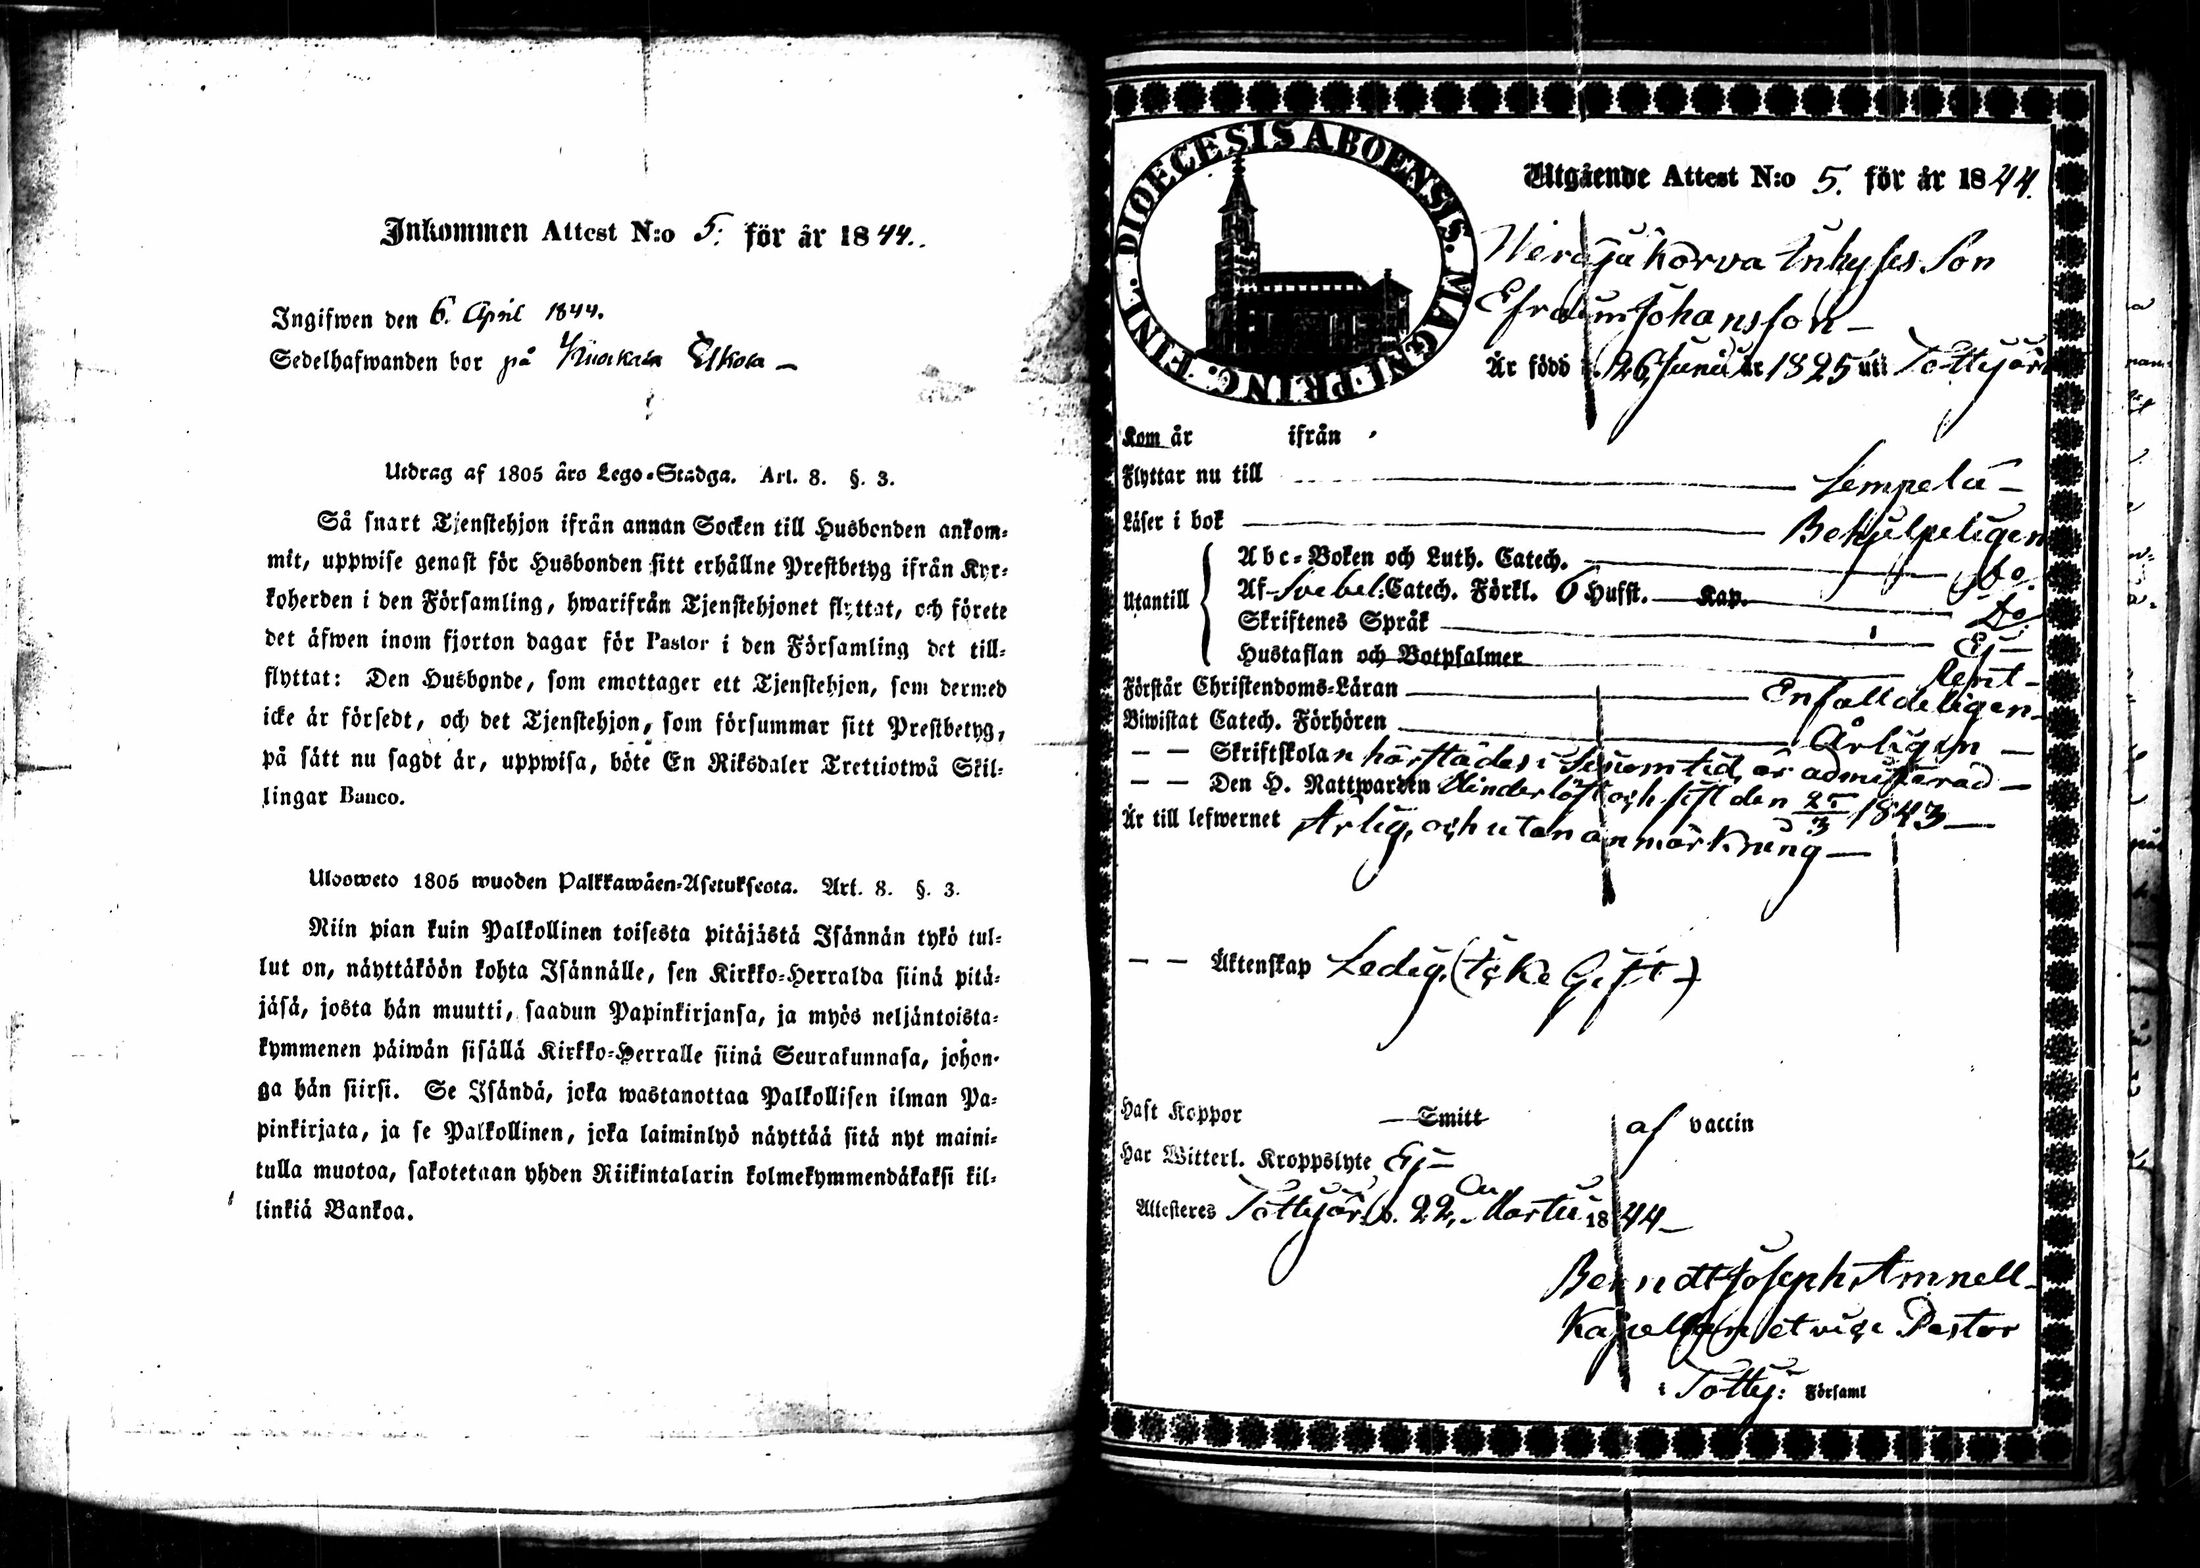 Inkommen Attest N:o 5. för år 1844.
Ingifwen den 6. April 1844.
Sedelhafwanden bor på
Utdrag af 1805 års Lego-Stadga. Art. 8. §. 3.
Så snart Tjenstehjon ifrån annan Socken till Husbonden ankom-
mit, uppwise genast för Husbonden sitt erhållne Prestbetyg ifrån Kyr-
koherden i den Församling, hwarifrån Tjenstehjonet flyttat, och förete
det äfwen inom fjorton dagar för Pastor i den Församling det till-
flyttat: Den Husbonde, som emottager ett Tjenstehjon, som dermed
icke är försedt, och det Tjenstehjon, som försummar sitt Prestbetyg,
på sätt nu sagdt är, uppwisa, böte En Riksdaler Trettiotwå Skil-
lingar Banco.
Ulosweto 1805 wuoden Palkkawäen-Asetuksesta. Art. 8. §. 3.
Niin pian kuin Palkollinen toisesta pitäjästä Isännän tykö tul-
lut on, näyttäköön kohta Isännälle, sen Kirkko-Herralda siinä pitä-
jäsä, josta hän muutti, saadun Papinkirjansa, ja myös neljäntoista-
kymmenen päiwän sisällä Kirkko-Herralle siinä Seurakunnasa, johon-
ga hän siirsi. Se Isändä, joka wastanottaa Palkollisen ilman Pa-
pinkirjata, ja se Palkollinen, joka laiminlyö näyttää sitä nyt maini-
tulla muotoa, sakotetaan yhden Riikintalarin kolmekymmendäkaksi kil-
linkiä Bankoa.
DIOECESIS ABOENSIS. MAGNI PRINC. FINL.
Utgående Attest N:o 5. för år 1844.
Inhyses Son
Efraim Johansson
Är född d. 26 Junii år 1825 uti Tottijärvi
Kom år ifrån
Flyttar nu till Lempelä
Läser i bok Behjelpeligen
Utantill
Abc-Boken och Luth. Catech. do.
Af Svebel. Catech. Förkl. 6 Hufst. Kap. do
Skriftenes Språk Ej
Hustaflan och Botpsalmer lärt
Förstår Christendoms-Läran Enfalldeligen
Biwistat Catech. Förhören Årligen
— — Skriftskolan härstädes i sinom tid, är admitterad
— — Den H. Nattwarden Hinderlöst och sist den 25/3 1843
Är till lefwernet Ärlig, och utan anmärkning
— — Äktenskap Ledig, (icke Gift)
Haft Koppor — Smitt af vaccin
Har Witterl. Kroppslyte Ej
Attesteres Tottijärvi d. 22. Martii 1844
Berndt Joseph Amnell
Kapellan et vice Pastor
i Tottij: Församl